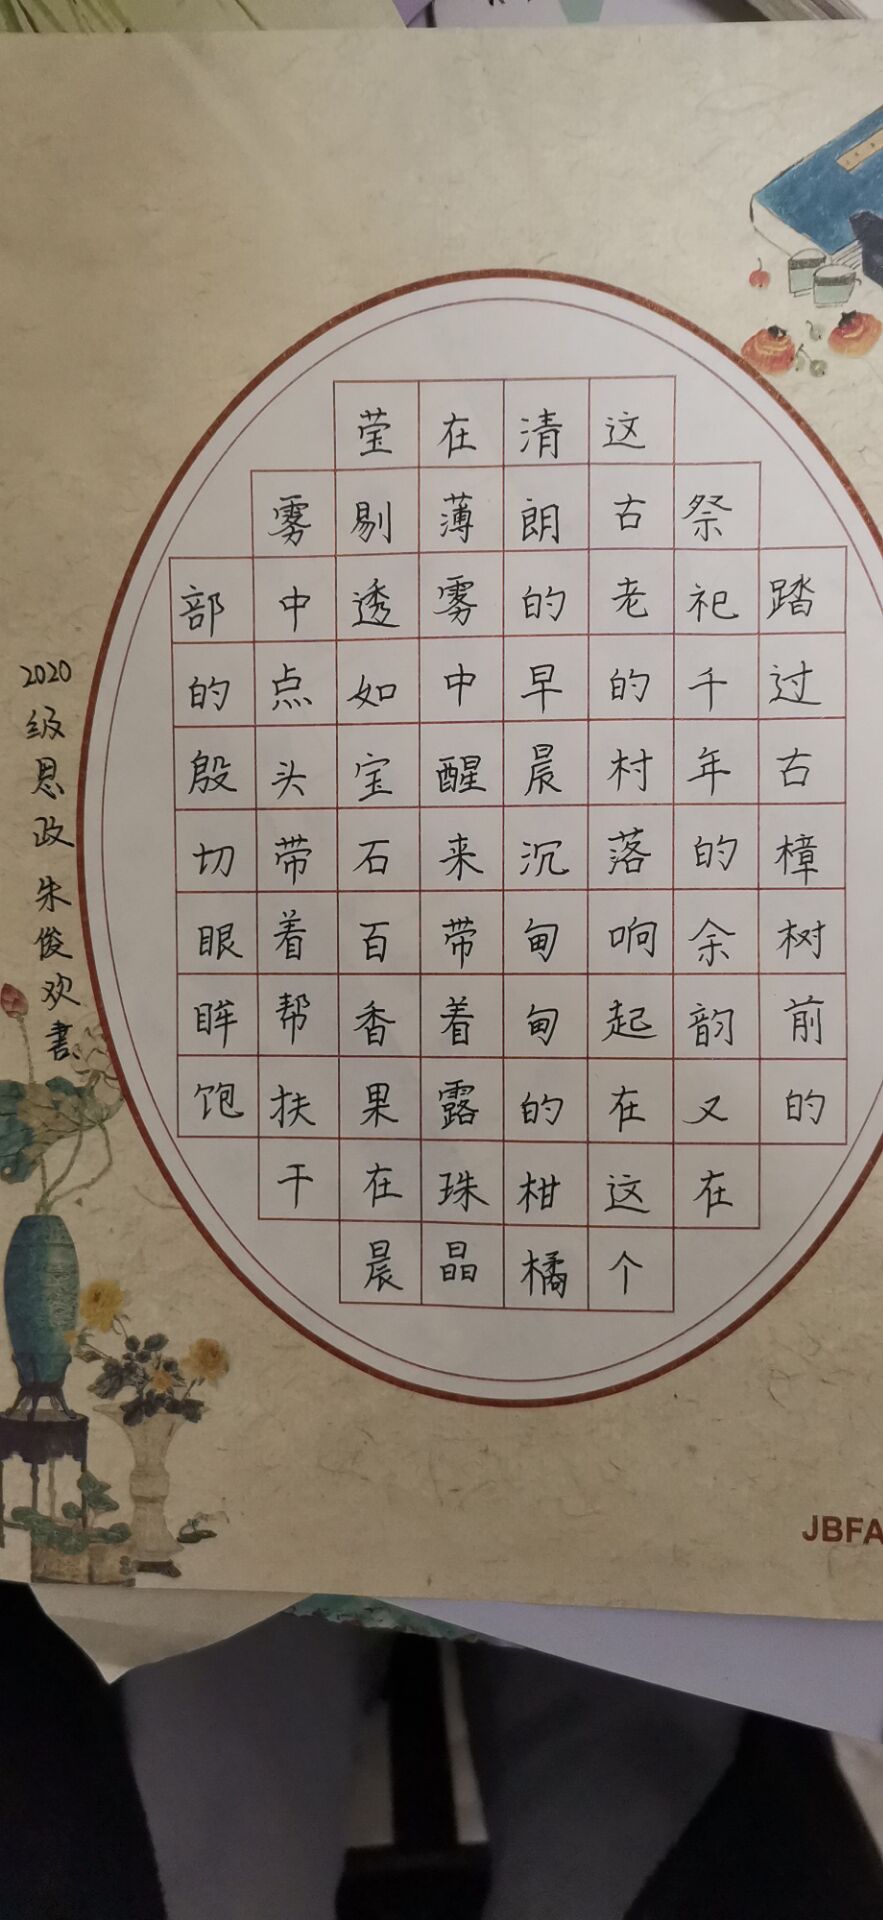 踏过古樟树前的
祭祀千年的余韵又在
这古老的村落响起在这个
清朗的早晨沉甸甸的柑橘
在薄雾中醒来带着露珠晶
莹剔透如宝石百香果在晨
雾中点头带着帮扶干
部的殷切眼眸饱
2020级思政朱俊欢書
JBFA